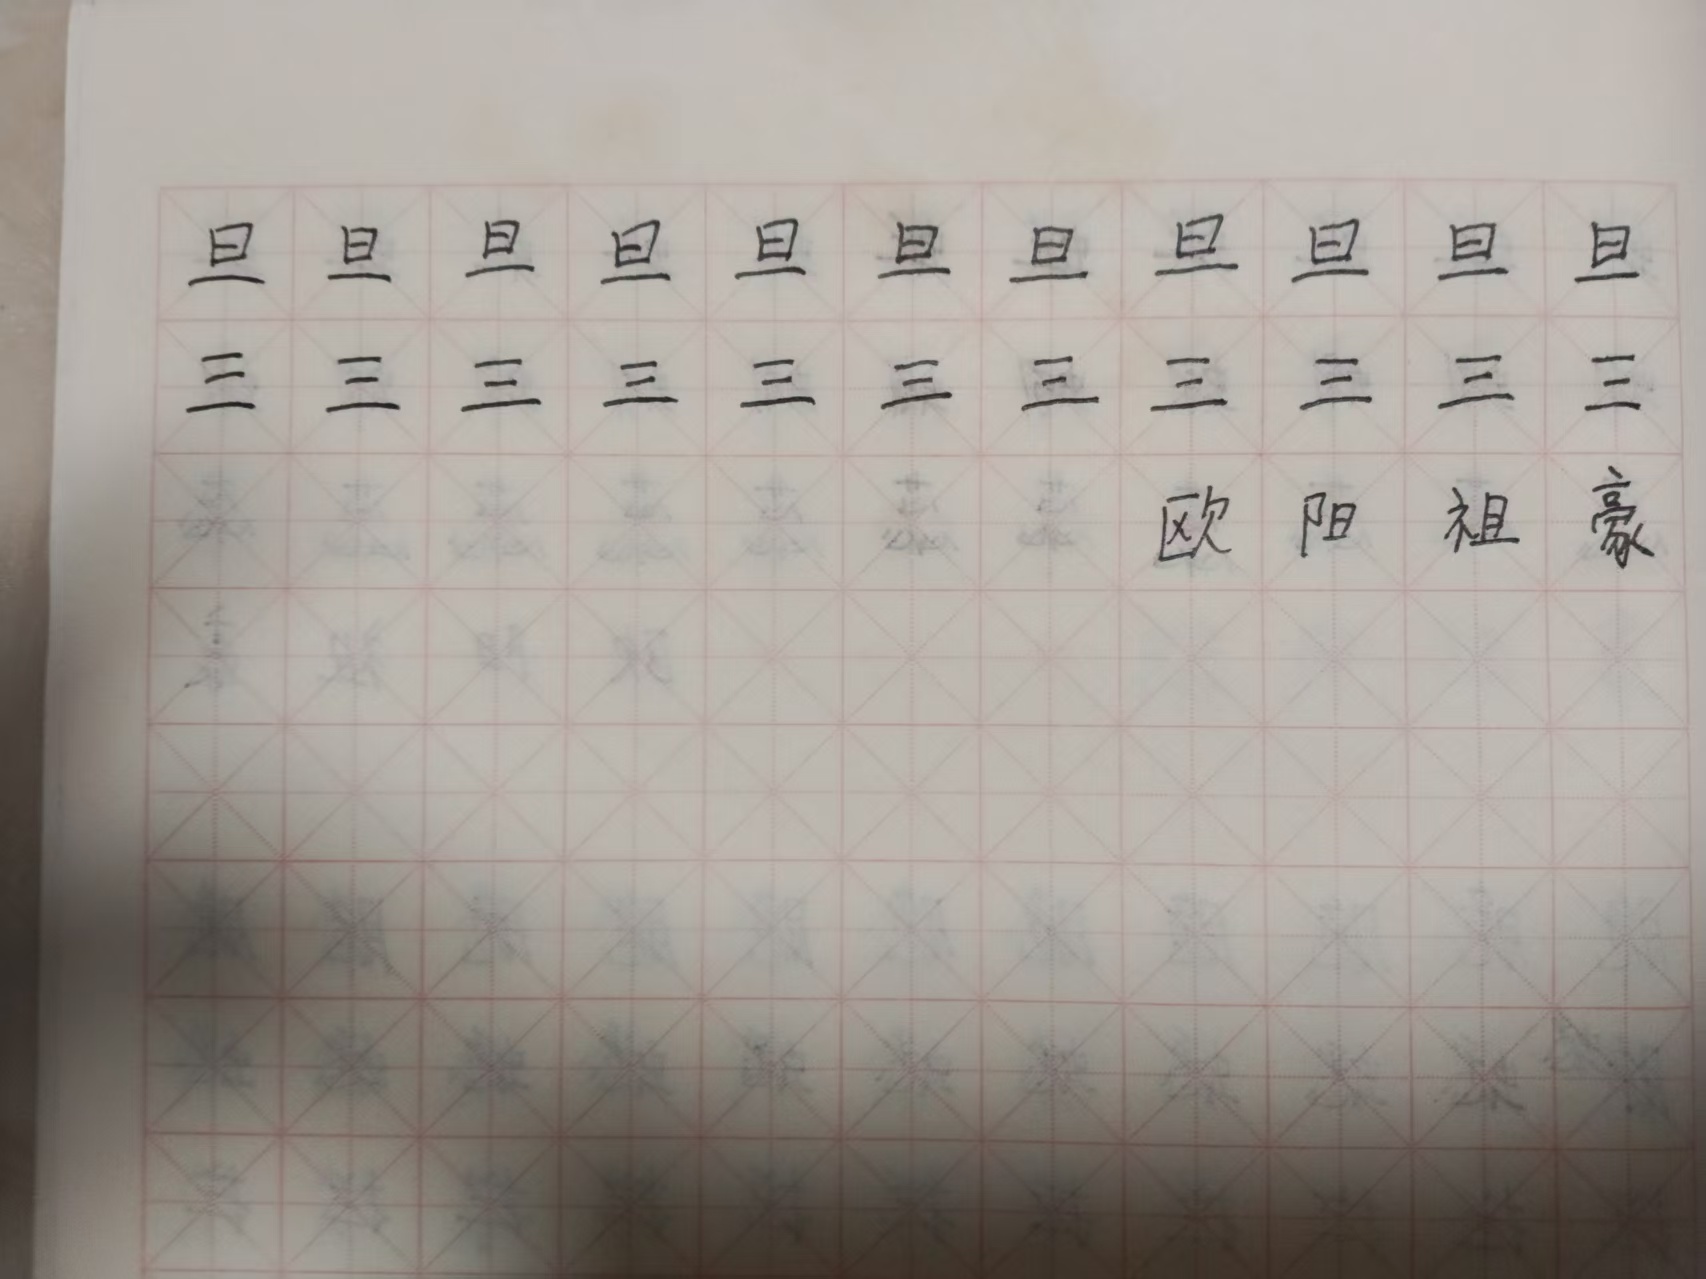 旦旦旦旦旦旦旦旦旦旦旦
三三三三三三三三三三三
欧阳祖豪